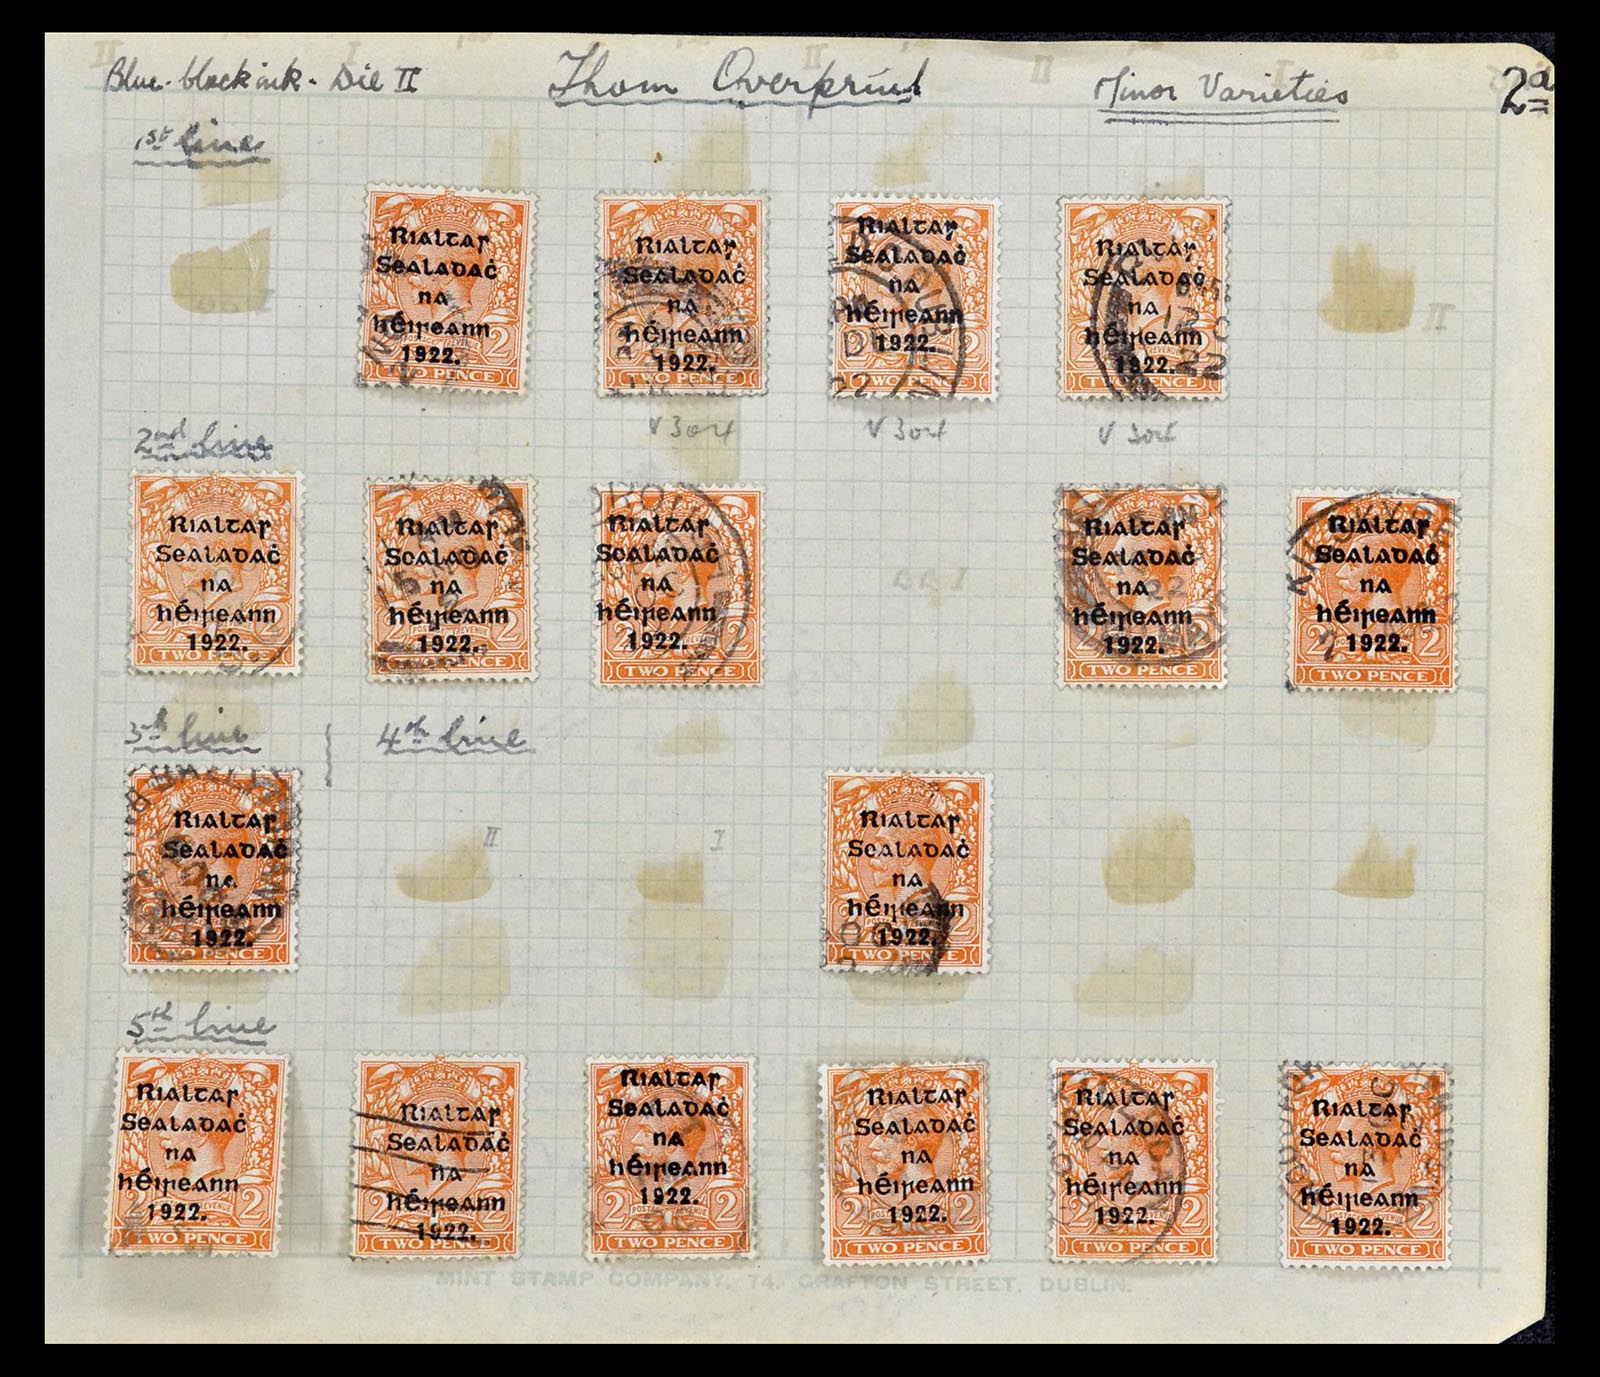 Blue-black ink - Die II Thom Overprint Minor Varieties 2a
1st line
Rialtar Rialtar Rialtar Rialtar
Sealadaċ Sealadaċ Sealadaċ Sealadaċ
na na na na
hÉireann hÉireann hÉireann hÉireann
1922. 1922. 1922. 1922.
TWO PENCE TWO PENCE TWO PENCE
II
2nd line
Rialtar Rialtar Rialtar Rialtar Rialtar
Sealadaċ Sealadaċ Sealadaċ Sealadaċ Sealadaċ
na na na na na
hÉireann hÉireann hÉireann hÉireann hÉireann
1922. 1922. 1922. 1922. 1922.
TWO PENCE TWO PENCE TWO PENCE TWO PENCE TWO PENCE
3rd line 4th line
II I
Rialtar Rialtar
Sealadaċ Sealadaċ
na na
hÉireann hÉireann
1922. 1922.
TWO PENCE TWO PENCE
5th line
Rialtar Rialtar Rialtar Rialtar Rialtar Rialtar
Sealadaċ Sealadaċ Sealadaċ Sealadaċ Sealadaċ Sealadaċ
na na na na na na
hÉireann hÉireann hÉireann hÉireann hÉireann hÉireann
1922. 1922. 1922. 1922. 1922. 1922.
TWO PENCE TWO PENCE TWO PENCE TWO PENCE TWO PENCE TWO PENCE
MINT STAMP COMPANY, 74, GRAFTON STREET, DUBLIN.